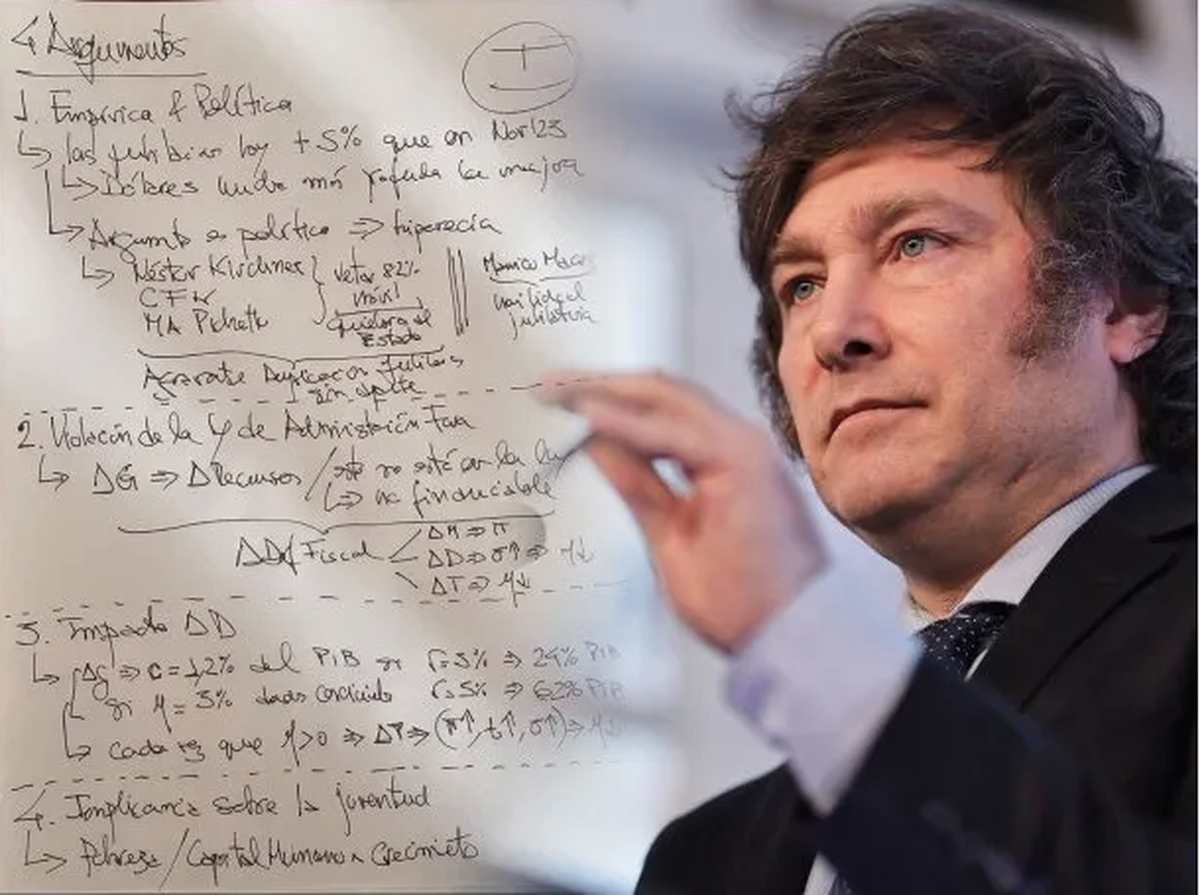 4 Argumentos
1. Empírica & Política
↳ las jubilan hoy +5% que en Nov'23
↳ Dólares mucho más la mejora
↳ Argumto es político ⇒ hiperecía
↳ Néstor Kirchner
CFK
MA Pichetto
vetar 82%
móvil
Quiebra al
Estado
Mauricio Macri
movilidad
jubilatoria
Duplicaron jubilados
sin aporte
2. Violación de la Ley de Administración
↳ ΔG ⇒ ΔRecursos / no está en la
↳ no financiable
Fiscal
ΔM ⇒ π
ΔD ⇒ σ↑ ⇒ η↓
ΔT ⇒ η↓
3. Impacto ΔD
↳ Δg ⇒ c = 1,2% del PIB si r=3% ⇒ 24% PIB
si η = 3% r=5% ⇒ 62% PIB
↳ cada vez que η>0 ⇒ (π↑, t↑, σ↑) ⇒
4. Implicancia sobre la juventud
↳ Pobreza / Capital Humano Crecimieto